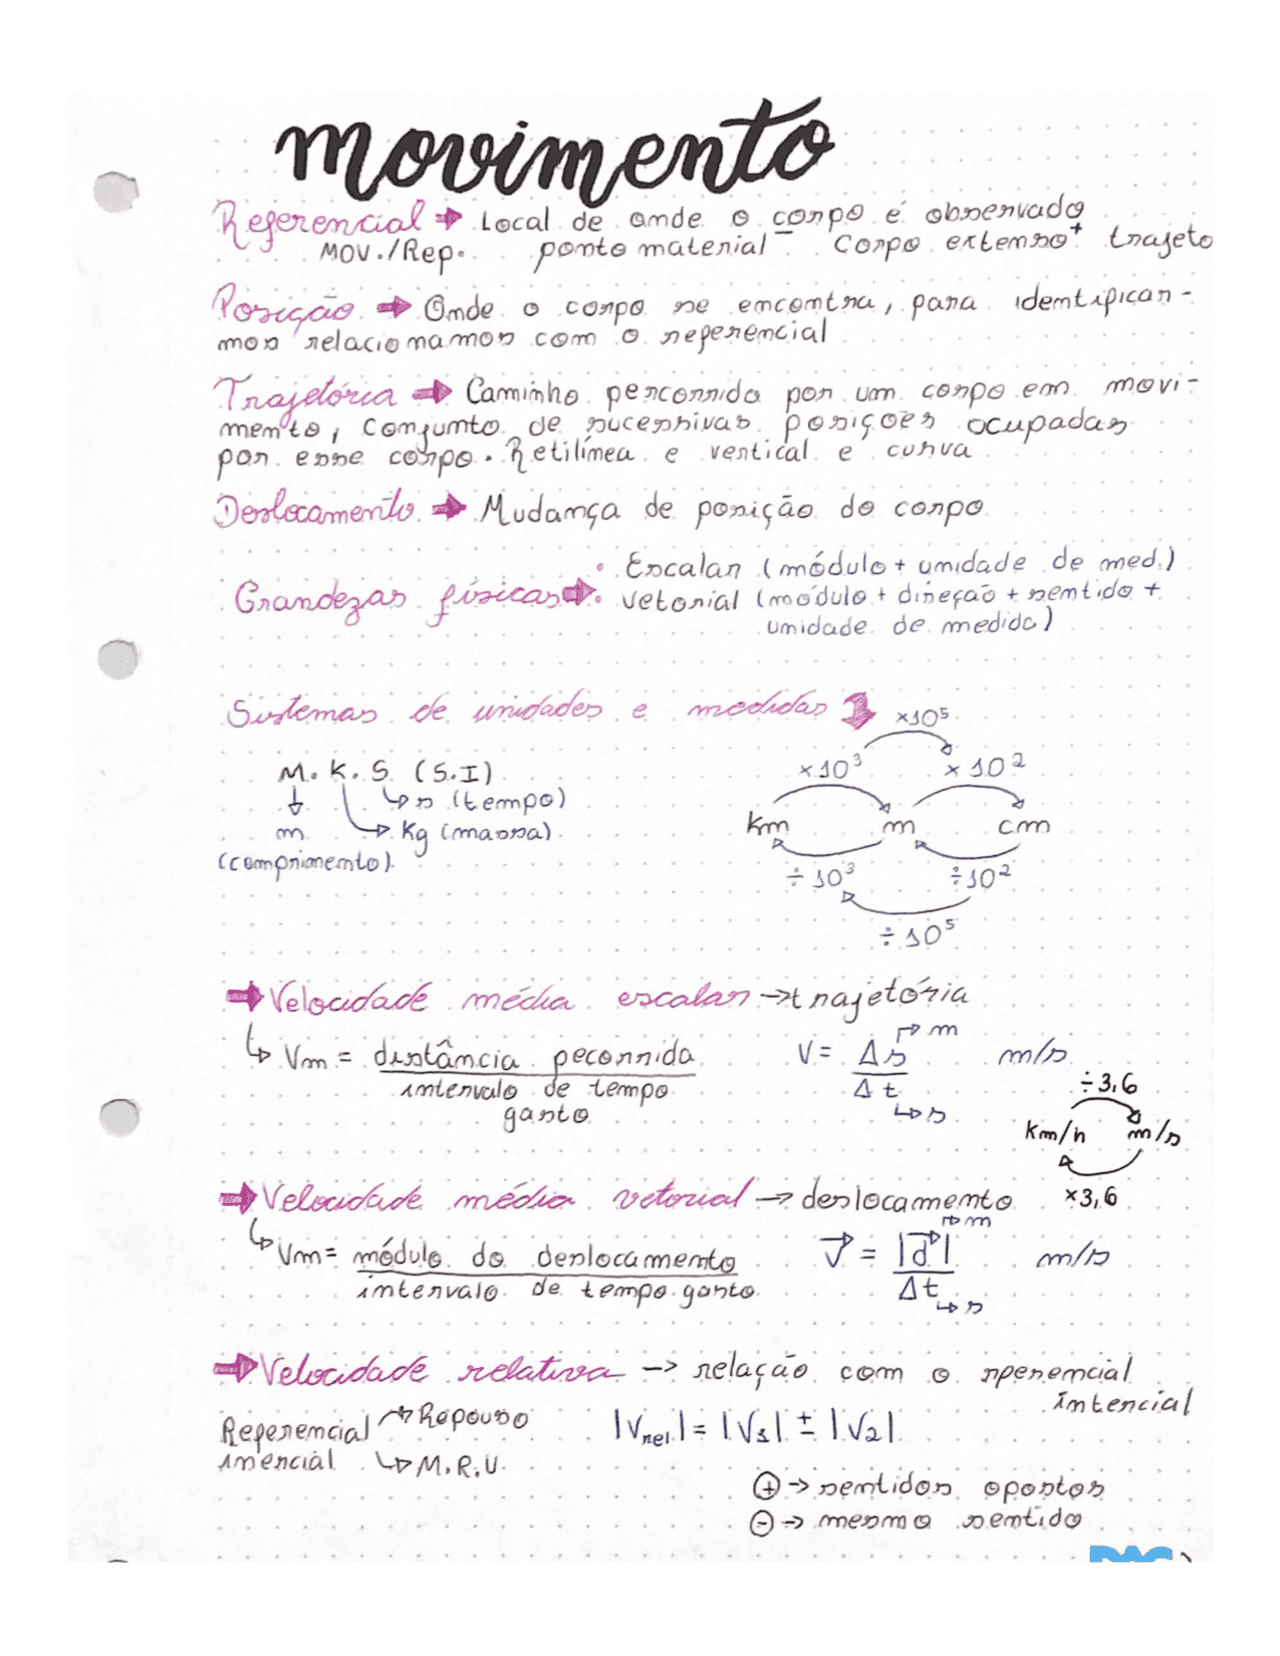 movimento
Referencial → Local de onde o corpo é observado
MOV./Rep. ponto material⁻ Corpo extenso⁺ trajeto
Posição → Onde o corpo se encontra, para identificar-
mos relacionamos com o referencial
Trajetória → Caminho percorrido por um corpo em movi-
mento, conjunto de sucessivas posições ocupadas
por esse corpo. Retilínea e vertical e curva
Deslocamento → Mudança de posição do corpo
Grandezas físicas → • Escalar (módulo + unidade de med.)
• vetorial (módulo + direção + sentido +
unidade de medida)
Sistemas de unidades e medidas
×10⁵
M. K. S (S.I) ×10³ ×10²
↳ s (tempo)
m ↳ Kg (massa) km m cm
(comprimento) ÷10³ ÷10²
÷10⁵
→ Velocidade média escalar → trajetória
↳ Vm = distância pecorrida V = Δs → m m/s
intervalo de tempo Δt ÷3,6
gasto ↳ s
km/h m/s
→ Velocidade média vetorial → deslocamento ×3,6
↳ Vm = módulo do deslocamento V⃗ = |d⃗| → m m/s
intervalo de tempo gasto Δt
↳ s
→ Velocidade relativa → relação com o rperencial
intencial
Referencial → Repouso |Vrel| = |V1| ± |V2|
inercial ↳ M.R.U.
⊕ → sentidos opostos
⊖ → mesmo sentido